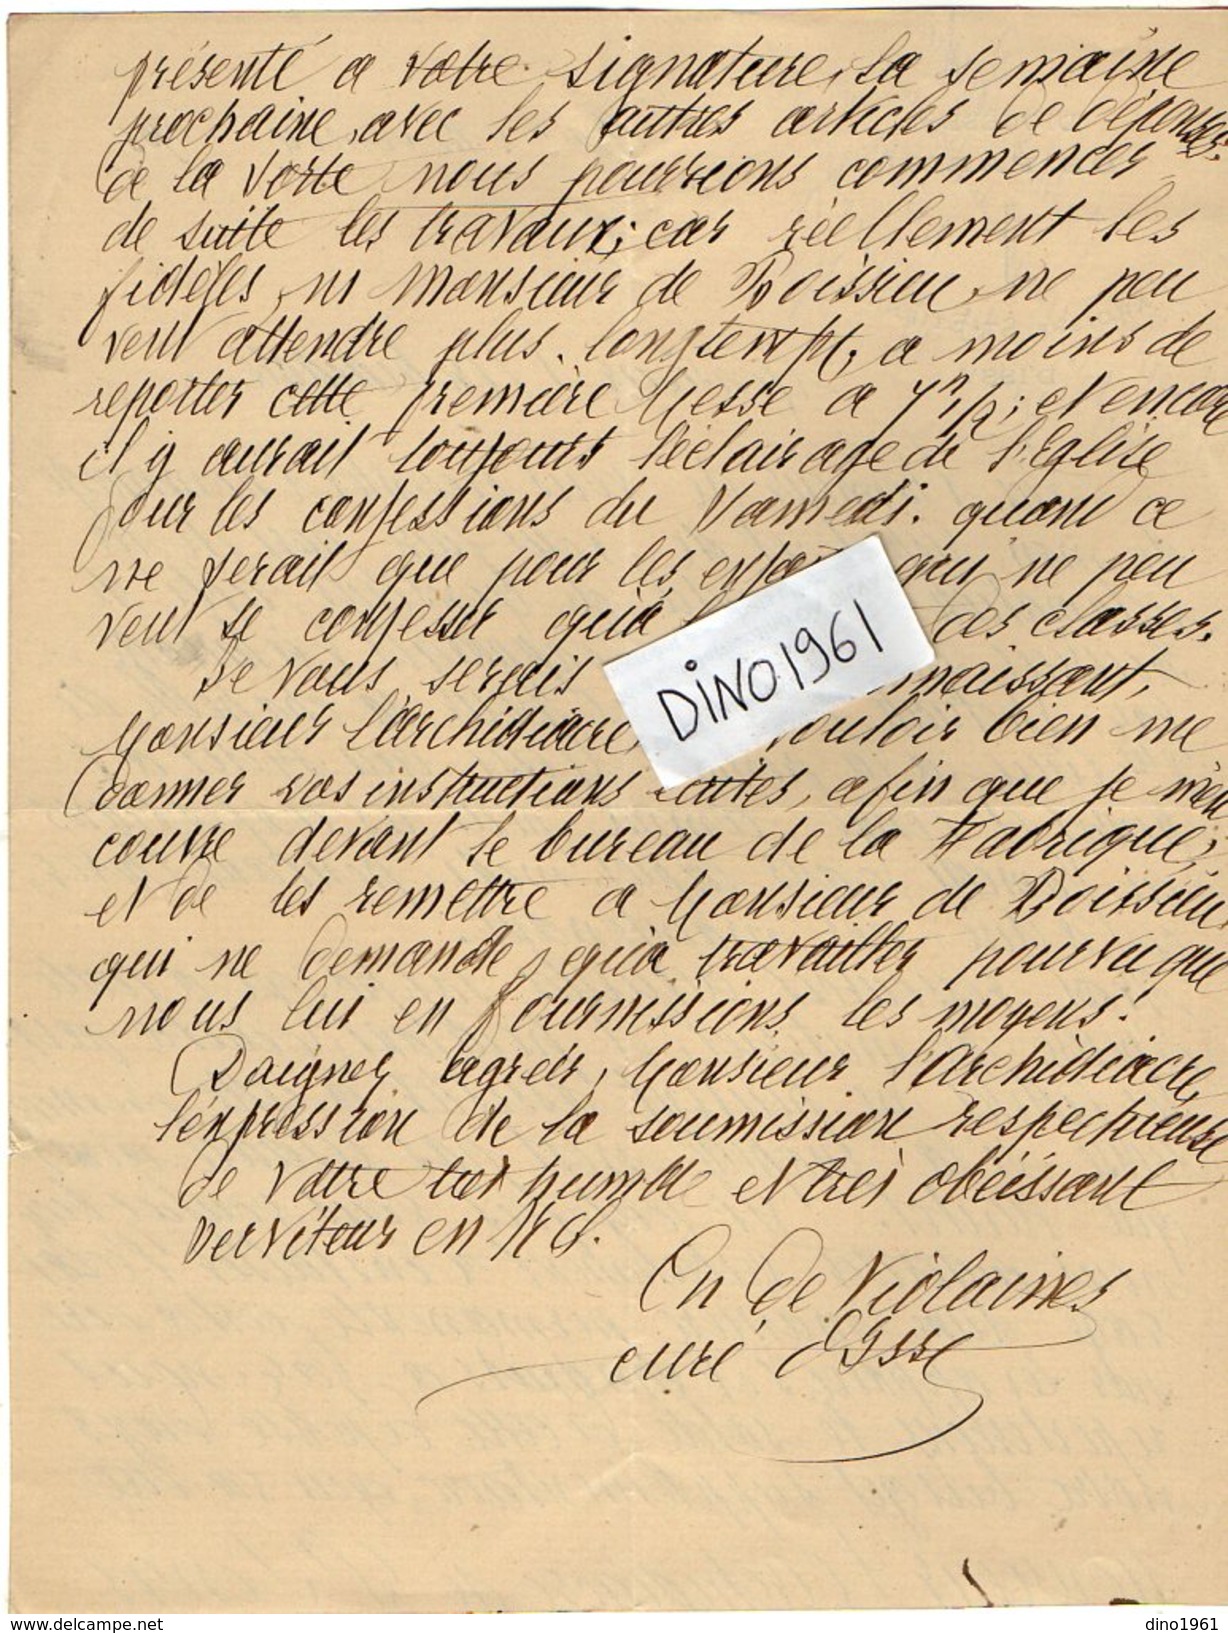 présenté a votre signature, la semaine
prochaine, avec les autres articles de dépenses.
De la sorte nous pourrions commencer
de suite les travaux; car réellement les
fidèles, ni Monsieur de Boissieu, ne peu
vent attendre plus longtemps, a moins de
reporter cette première Messe a 7h 1/2; et encore
il y aurait toujours l'éclairage de l'Eglise
pour les confessions du Samedi. quand ce
ne serait que pour les qui ne peu
vent se confesser qu'à des classes.
Je vous serais
Monsieur l'Archidiacre, vouloir bien me
donner vos instructions écrites, afin que je m'en
couvre devant le bureau de la Fabrique;
et de les remettre a Monsieur de Boissieu,
qui ne demande, qu'à travailler pourvu que
nous lui en fournissions les moyens.
Daignez agréer, Monsieur l'Archidiacre,
l'expression de la soumission respectueuse
de votre très humble et très obéissant
Serviteur en N. S.
De Violaines
curé d'Isse
DINO1961
www.delcampe.net
dino1961